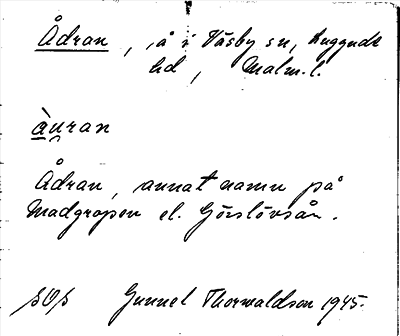 Ådran, å i Väsby sn, Luggude
hd, Malm. l.
àuran
Ådran, annat namn på
Madgropen el. Görslövsån.
Gunnel Thorwaldson 1945.